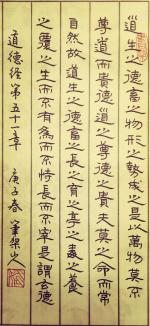 道生之德畜之物形之勢成之是以萬物莫不
尊道而貴德道之尊德之貴夫莫之命而常
自然故道生之德畜之長之育之亭之毒之養
之覆之生而不有為而不恃長而不宰是謂玄德
道德經第五十一章 庚子春